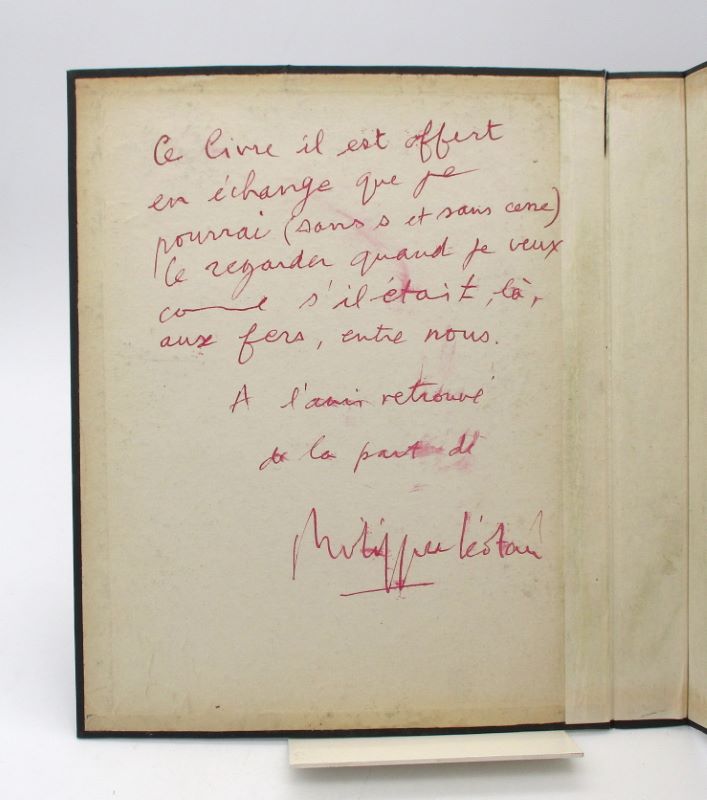 Ce livre il est offert
en échange que je
pourrai (sans s et sans cesse)
le regarder quand je veux
comme s'il était, là,
aux fers, entre nous.
A l'ami retrouvé
de la part de
Philippe Léotard